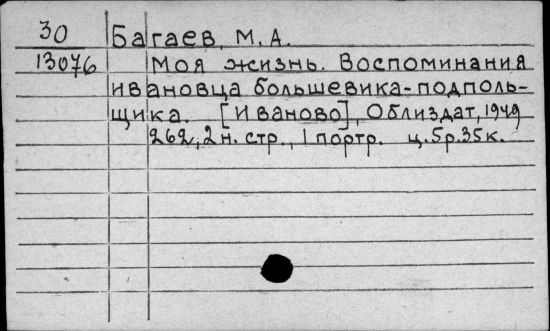 30 Багаев, М.А.
13076 Моя жизнь. Воспоминания
ивановца большевика-подполь-
щика. [Иваново], Облиздат, 1949
262, 2 н. стр., 1 портр. ц. 5р. 35к.